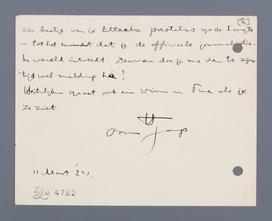 (2)
een beetje van je litteraire prestaties op de hoogte
– tot het moment dat je de officieele journalistie-
ke wereld intreedt. Daarvan doe je me dan te zijner
tijd wel melding hè?
Hartelijke groet ook aan Wim en Tine als je
ze ziet
Jaap
11 Maart '21.
4762